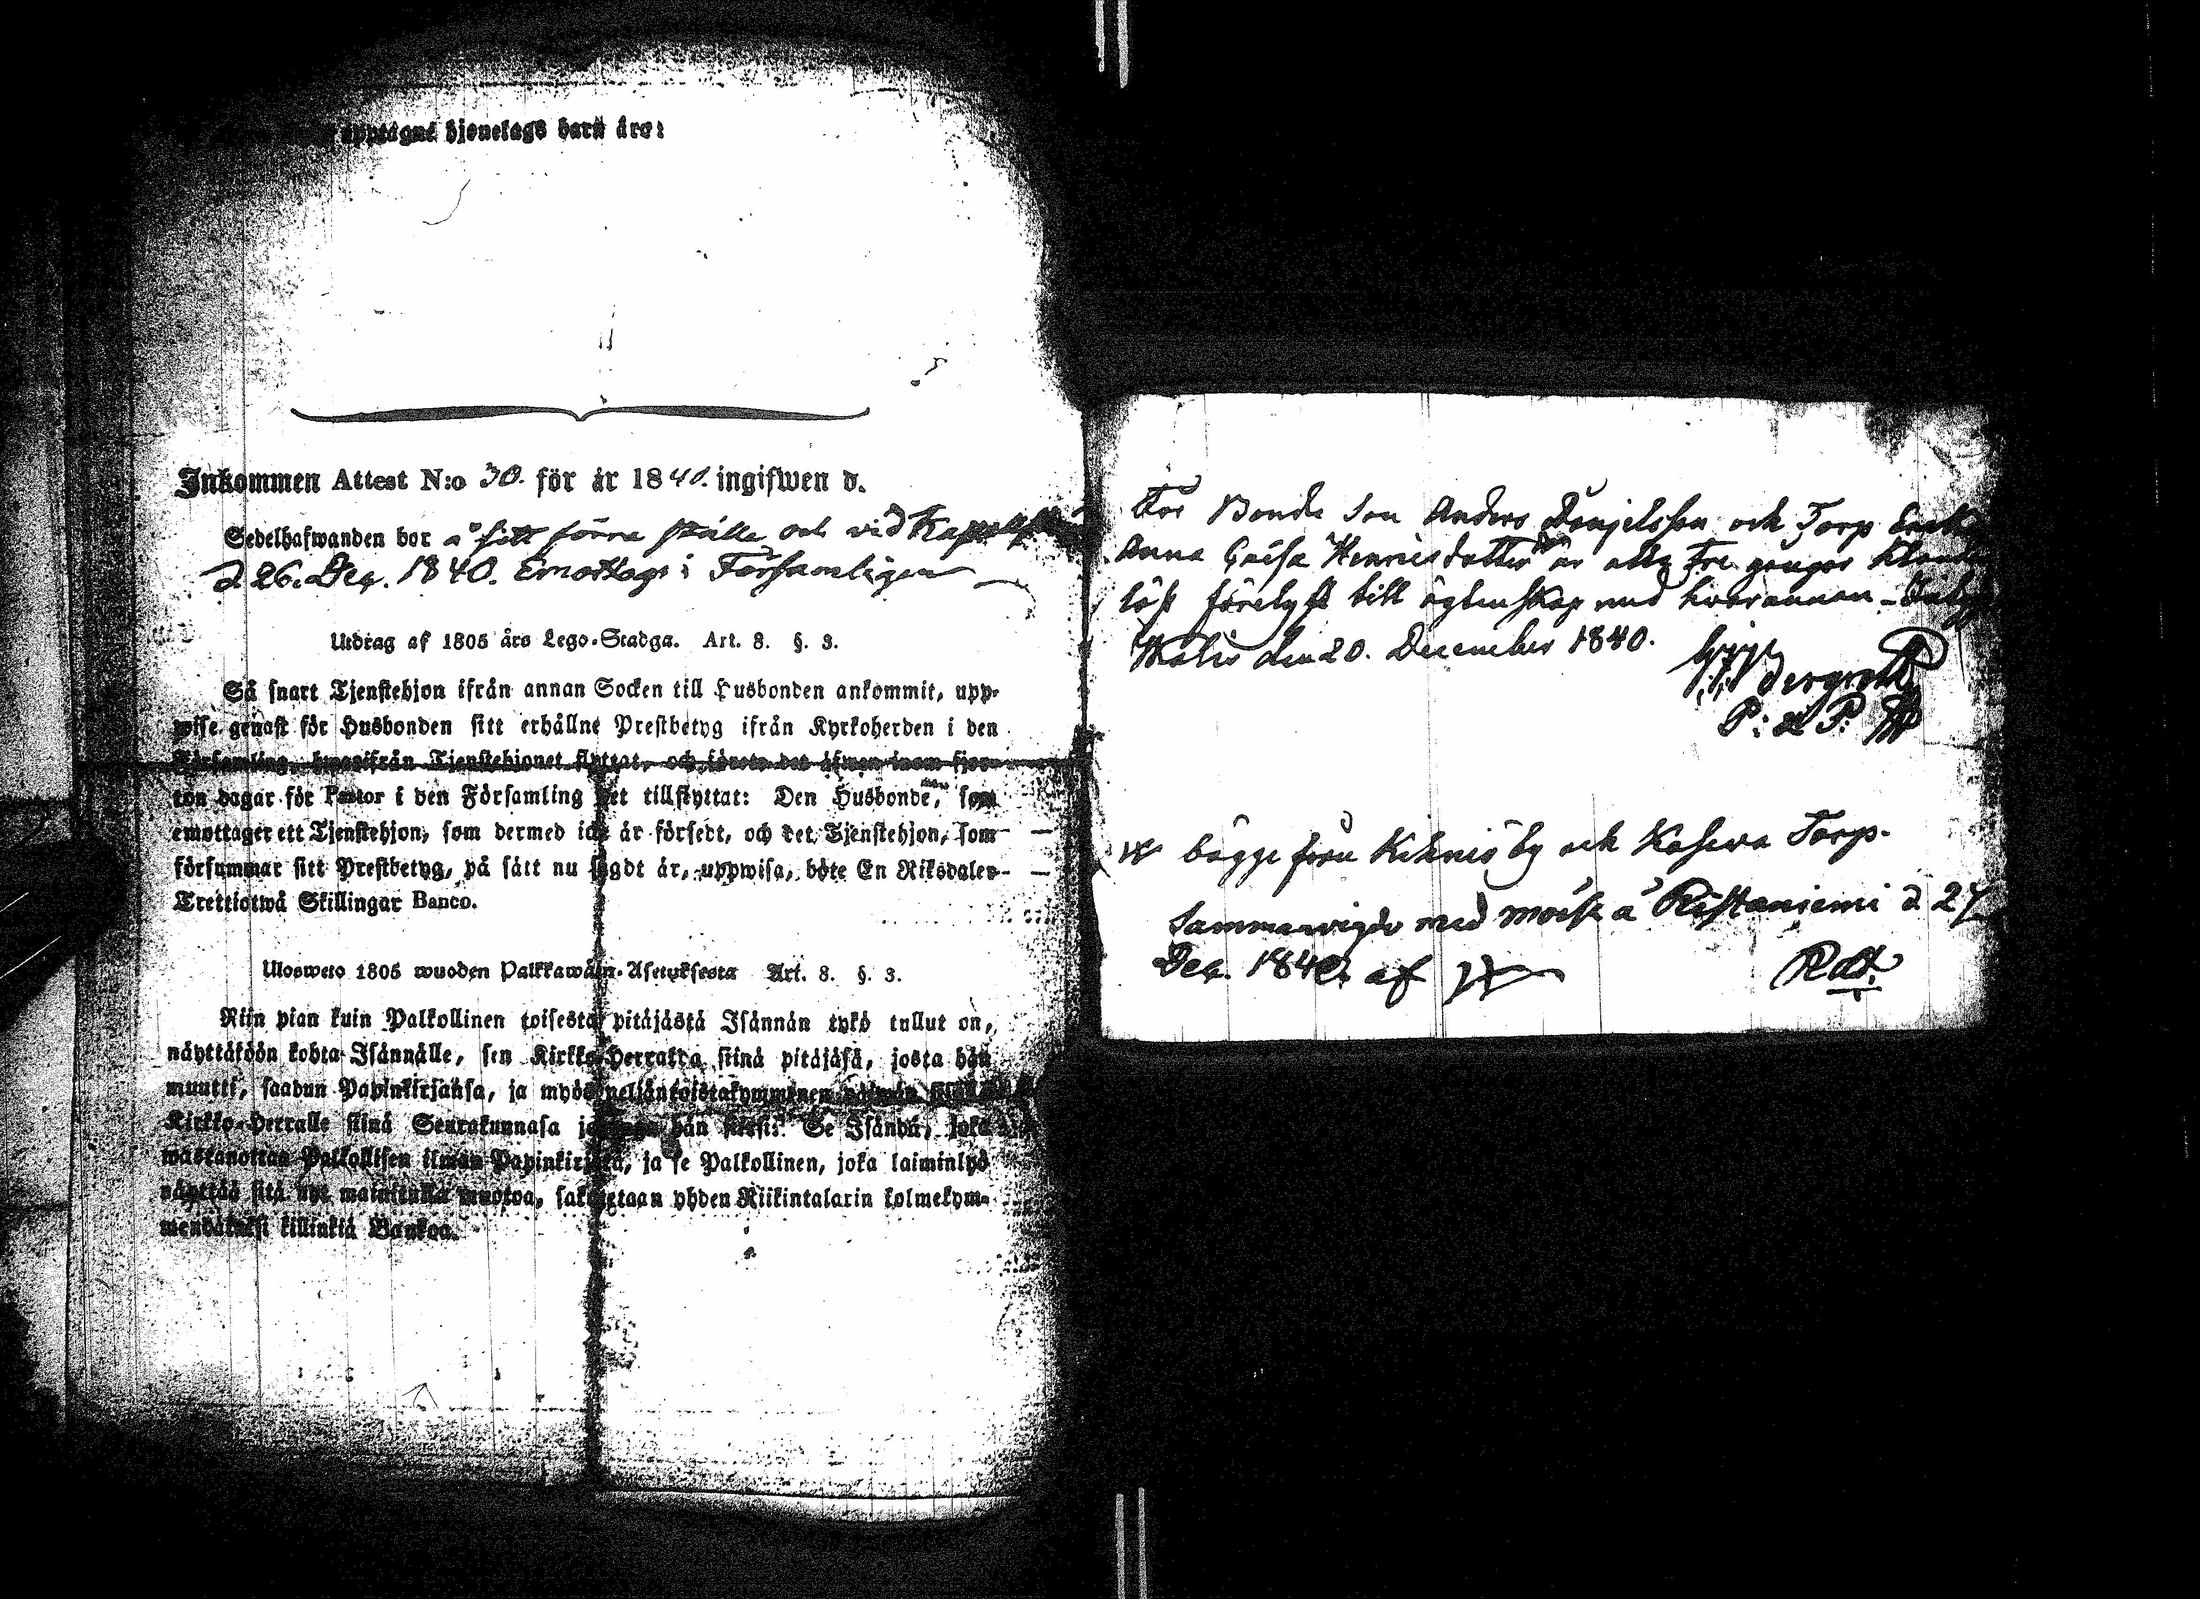 upptagne hjonelags barn äro:
Inkommen Attest N:o 30. för år 1840. ingifwen d.
Sedelhafwanden bor å sitt förra ställe och vid
d. 26. Dec. 1840. Emottags i Församlingen
Utdrag af 1805 års Lego-Stadga. Art. 8. §. 3.
Så snart Tjenstehjon ifrån annan Socken till Husbonden ankommit, upp-
wise genast för Husbonden sitt erhållne Prestbetyg ifrån Kyrkoherden i den
Församling, hwarifrån Tjenstehjonet flyttat, och förete det äfwen inom fjor-
ton dagar för Pastor i den Församling det tillflyttat: Den Husbonde, som
emottager ett Tjenstehjon, som dermed icke är försedt, och det Tjenstehjon, som
försummar sitt Prestbetyg, på sätt nu sagdt är, uppwisa, böte En Riksdaler
Trettiotwå Skillingar Banco.
Ulosweto 1805 wuoden Palkkawäen-Asetuksesta Art. 8. §. 3.
Niin pian kuin Palkollinen toisesta pitäjästä Isännän tykö tullut on,
näyttäköön kohta Isännälle, sen Kirkko-Herralta siinä pitäjäsä, josta hän
muutti, saadun Papinkirjansa, ja myös neljäntoistakymmenen päiwän
Kirkko-Herralle siinä Seurakunnasa hän siirsi: Se Isändä, joka
wastanottaa Palkollisen ilman Papinkirjata, ja se Palkollinen, joka laiminlyö
näyttää sitä nyt mainitulla muotoa, sakotetaan yhden Riikintalarin kolmekym-
mendäkaksi killinkiä Bankoa.
För Bonde Son Anders Danjelsson och Torp
Anna Gaisa Henricsdotter är allt Tre gånger
löst förelyst till ägtenskap med hvarannan
den 20. December 1840.
P:
bägge från by och Torp.
Sammanvigde med å Ristaniemi d. 27
Dec. 1840. af